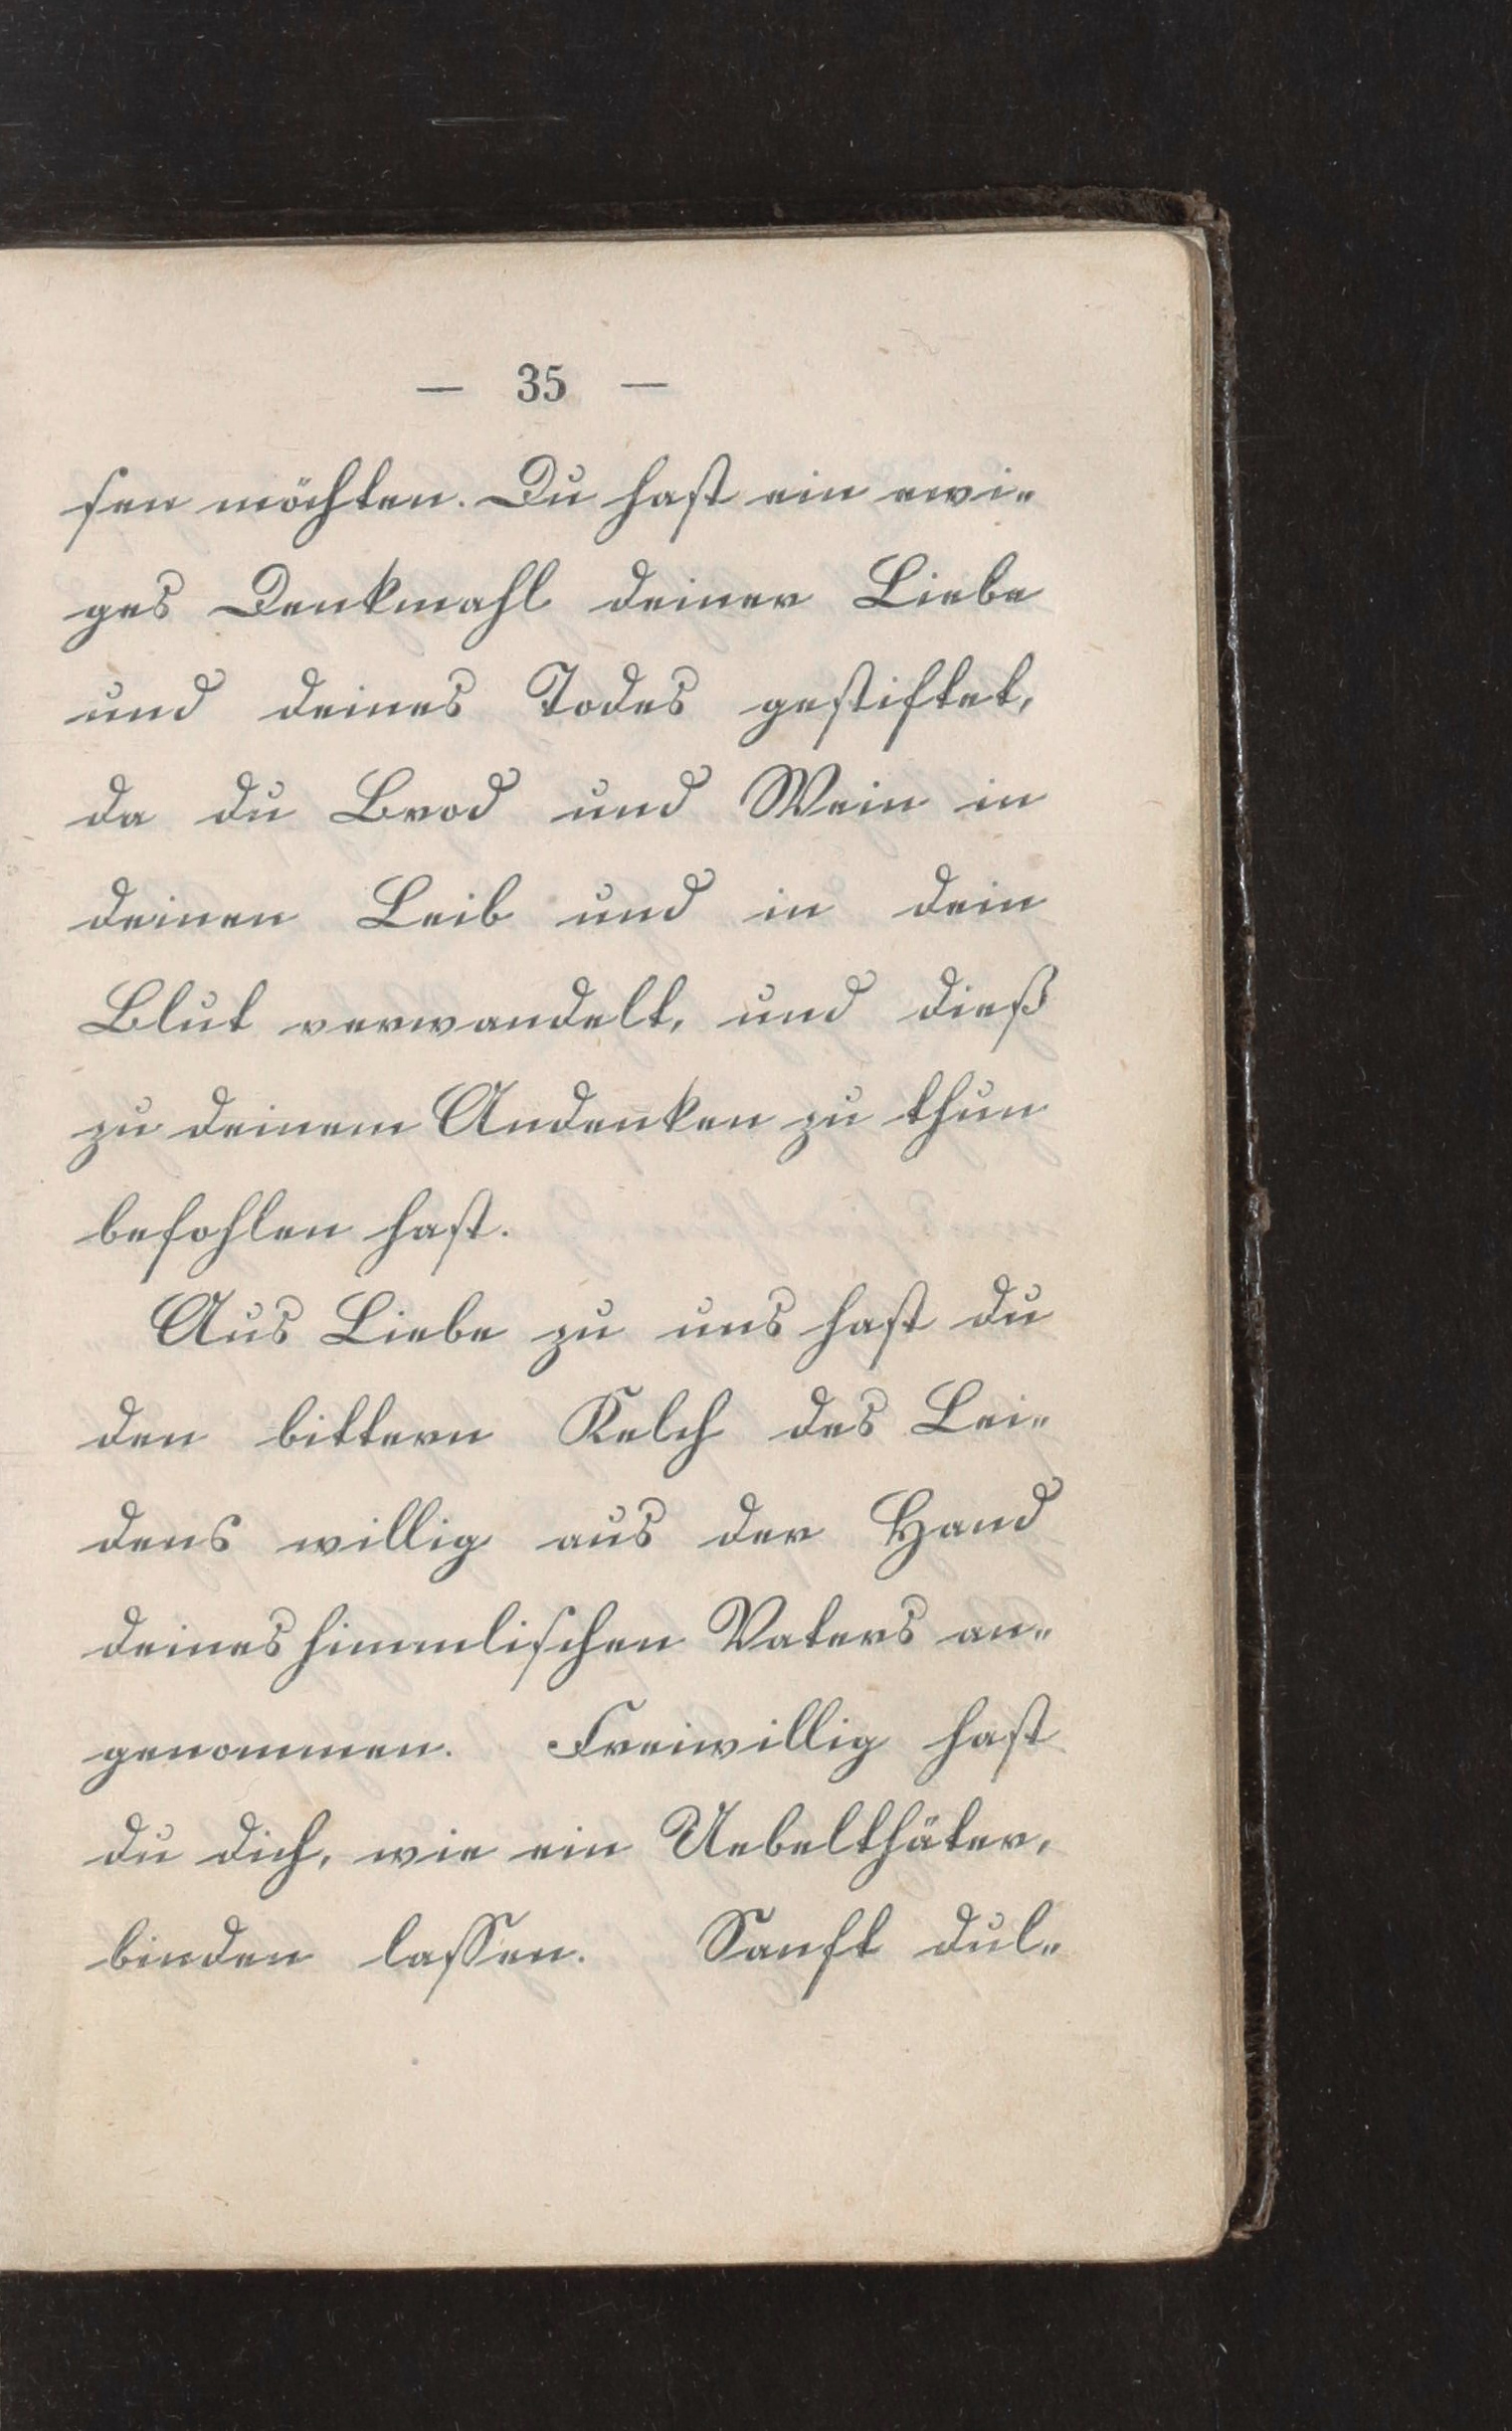 — 35 —
sen möchten. Du hast ein ewi-
ges Denkmahl deiner Liebe
und deines Todes gestiftet,
da du Brod und Wein in
deinen Leib und in dein
Blut verwandelt, und dieß
zu deinem Andenken zu thun
befohlen hast.
Aus Liebe zu uns hast du
den bittern Kelch des Lei-
dens willig aus der Hand
deines himmlischen Vaters an-
genommen. Freiwillig hast
du dich, wie ein Uebelthäter,
binden lassen. Sanft dul-